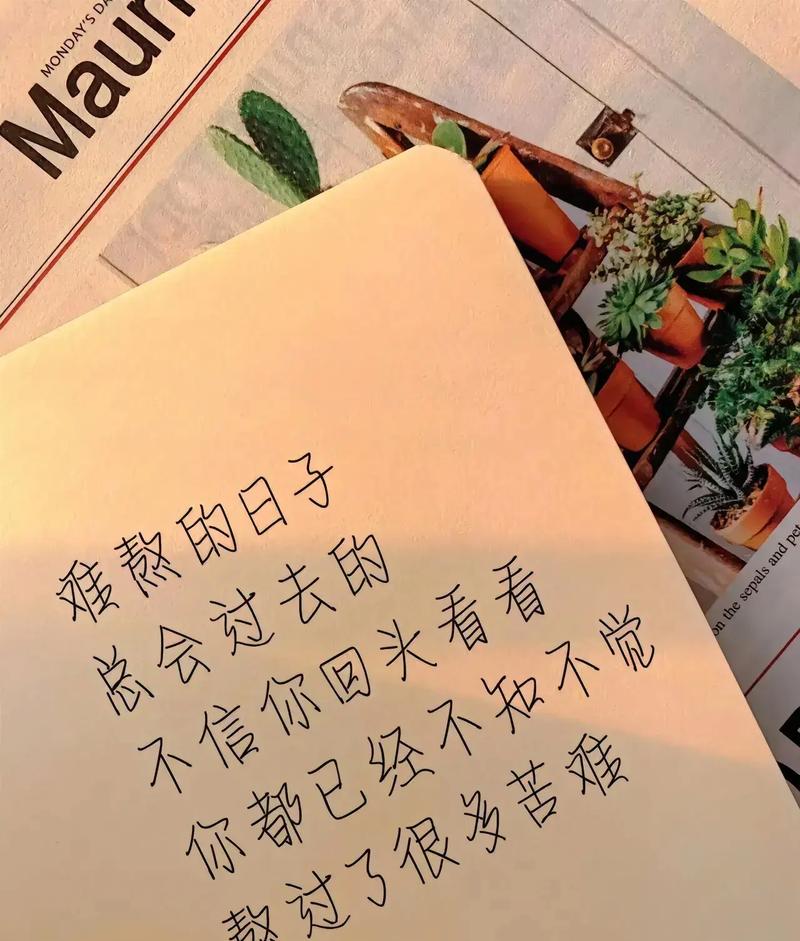 MONDAY'S DA
Maur
on the sepals and pet
难熬的日子
总会过去的
不信你回头看看
你都已经不知不觉
熬过了很多苦难